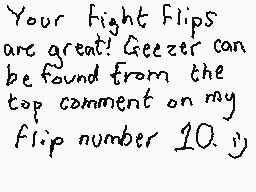 Your fight flips
are great! Geezer can
be found from the
top comment on my
flip number 10. :)